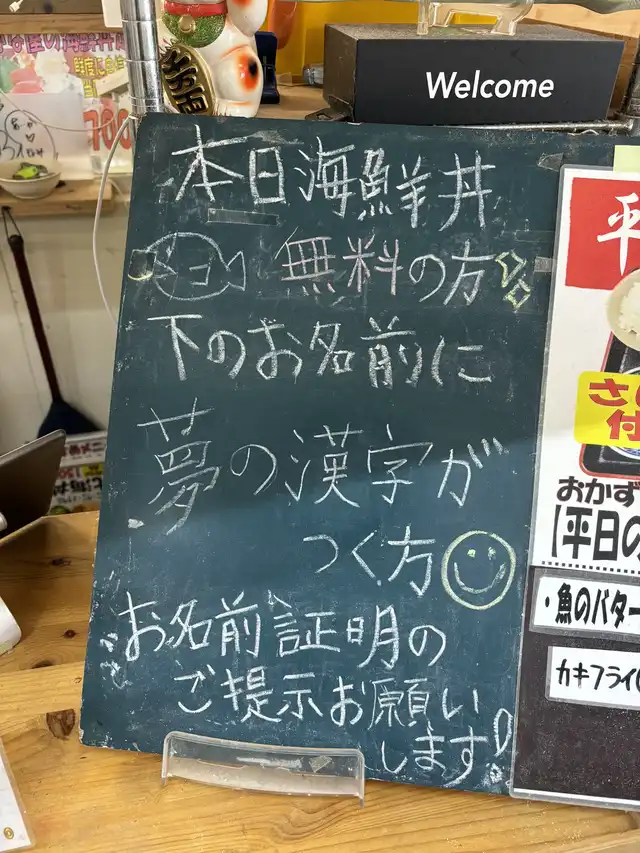 Welcome
本日海鮮丼
無料の方
下のお名前に
夢の漢字が
つく方
お名前証明の
ご提示お願い
します!
平
さ
付
おかず
【平日の
・魚のバター
カキフライ